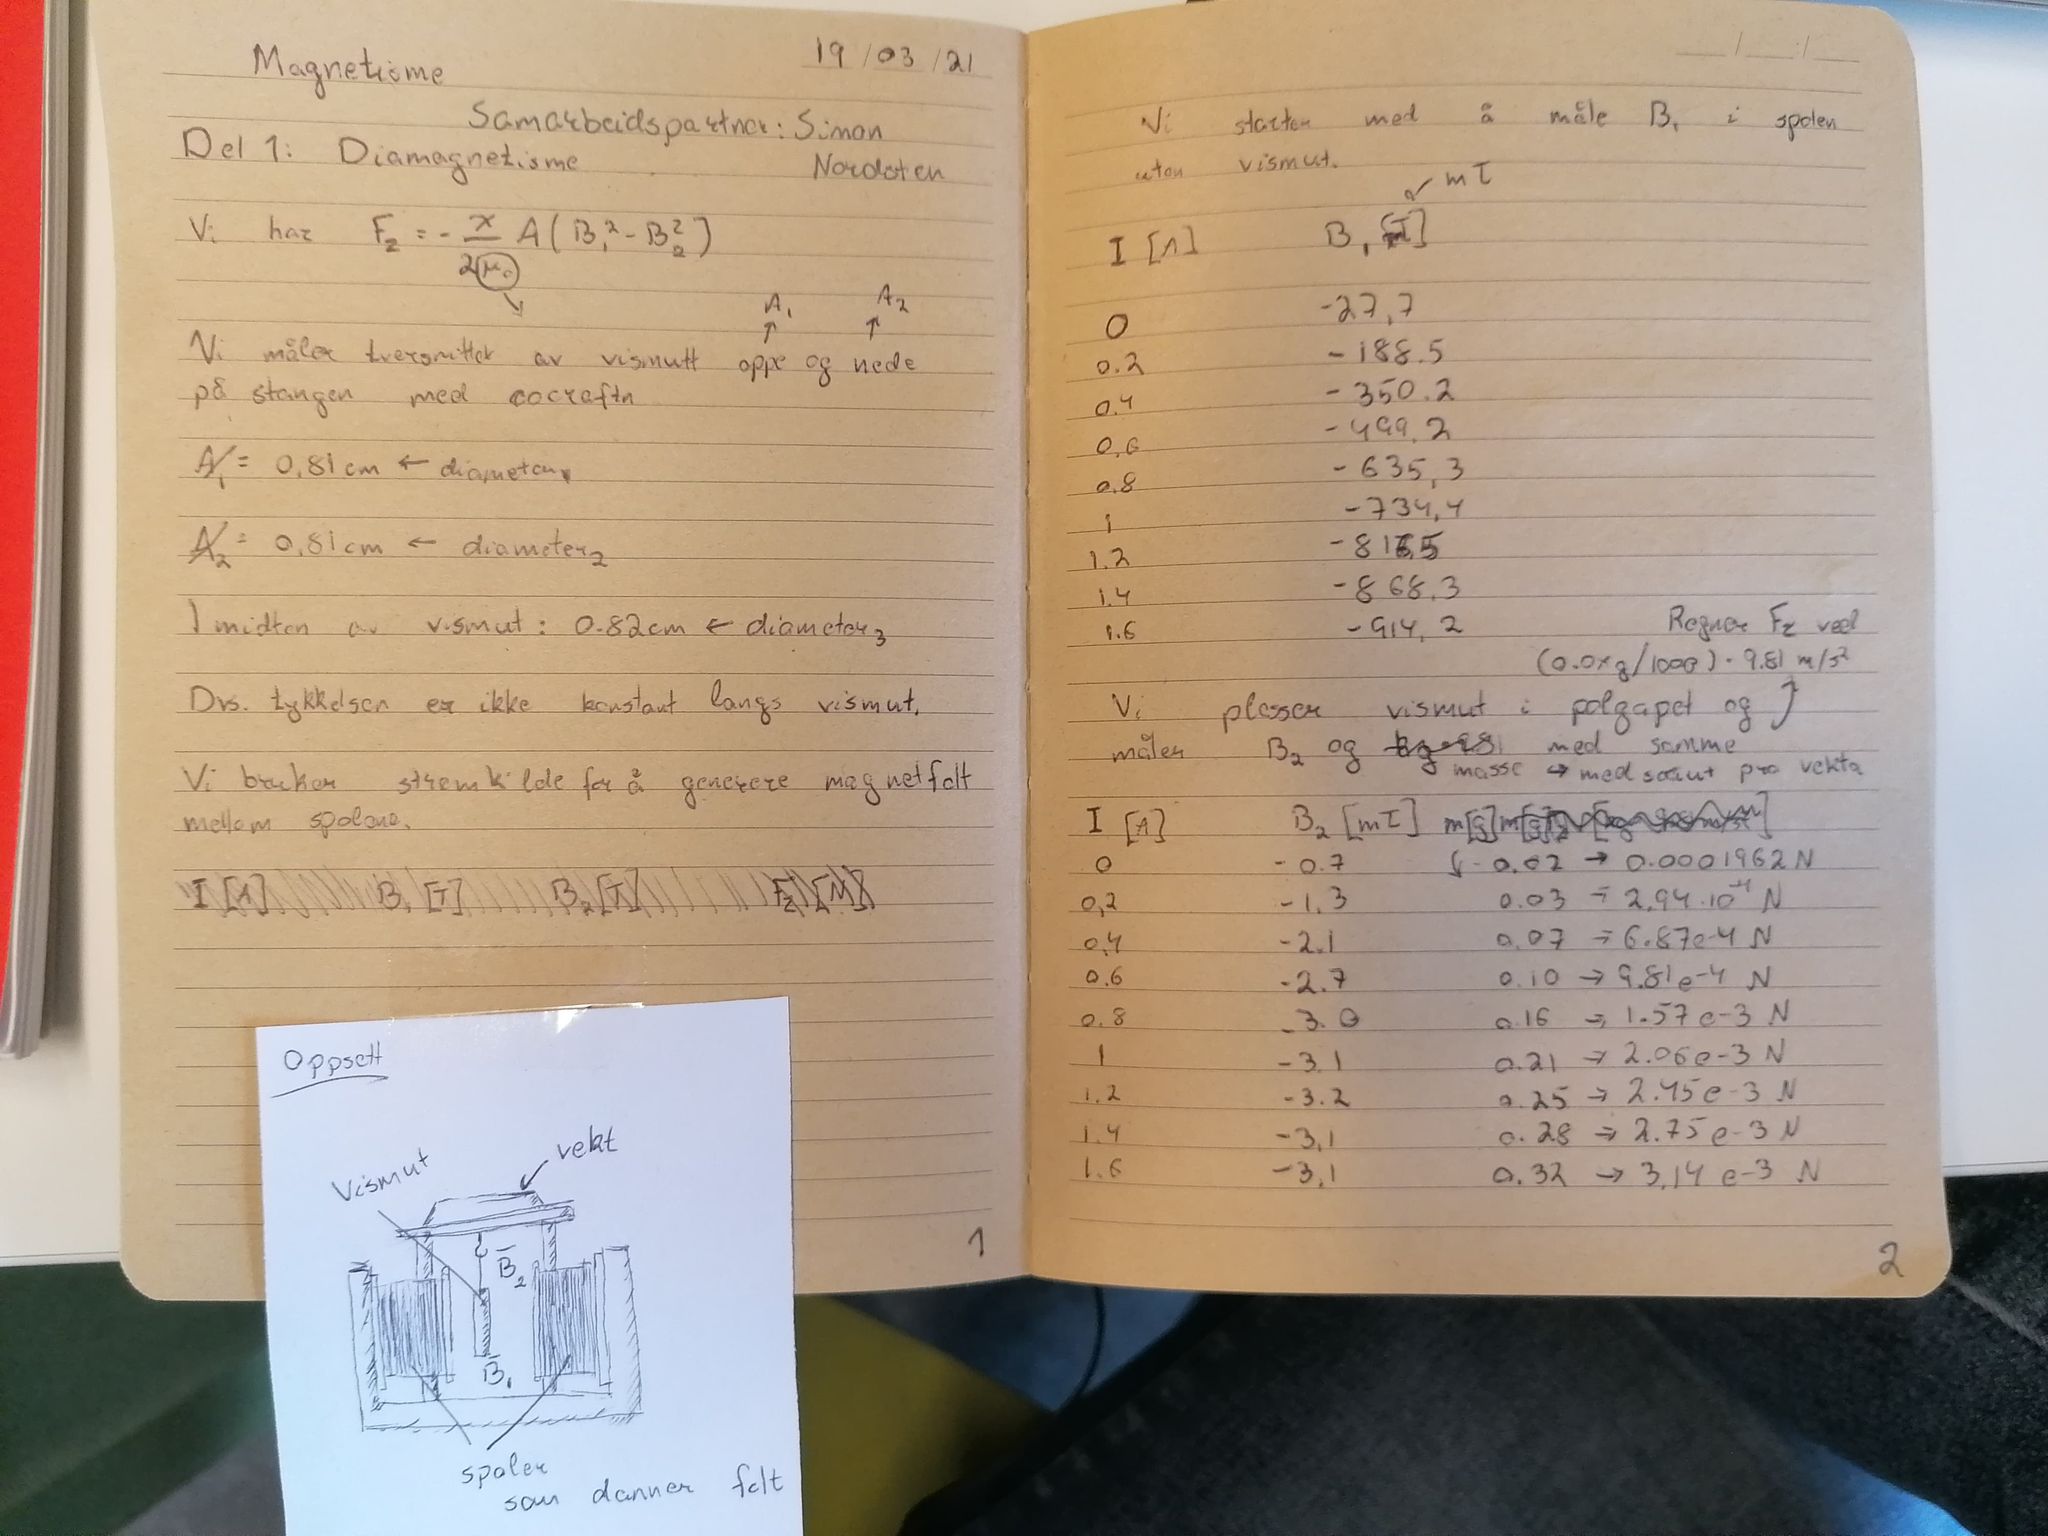 Magnetisme
19/03/21
Samarbeidspartner: Simon
Del 1: Diamagnetisme
Nordoten
Vi har F_z = - χ/2μ₀ A(B₁² - B₂²)
A₁ A₂
Vi måler tversnittet av vismutt oppe og nede
på stangen med cocraftn
A₁ = 0,81 cm ← diameter₁
A₂ = 0,81 cm ← diameter₂
I midten av vismut: 0.82 cm ← diameter₃
Dvs. tykkelsen er ikke konstant langs vismut.
Vi bruker strømkilde for å generere magnetfelt
mellom spolene.
I [A] B₁ [T] B₂ [T] F_z [N]
1
Oppsett
Vismut
vekt
B₂
B₁
spoler
som danner felt
Vi starter med å måle B₁ i spolen
uten vismut.
mT
I [A] B₁ [T]
0 -27,7
0.2 -188.5
0.4 -350.2
0,6 -499.2
0.8 -635,3
1 -734,4
1.2
1.4 -868.3
1.6 -914,2
Regner F_z ved
(0.0xg/1000) · 9.81 m/s²
Vi plasser vismut i polgapet og
måler B₂ og med samme
masse → med snut pro vekta
I [A] B₂ [mT] m[g]
0 -0.7 -0.02 → 0.0001962 N
0,2 -1.3 0.03 → 2,94·10⁻⁴ N
0,4 -2.1 0.07 → 6.87e-4 N
0.6 -2.7 0.10 → 9.81e-4 N
0.8 -3.0 0.16 → 1.57e-3 N
1 -3.1 0.21 → 2.06e-3 N
1.2 -3.2 0.25 → 2.45e-3 N
1.4 -3,1 0.28 → 2.75e-3 N
1.6 -3,1 0.32 → 3,14e-3 N
2